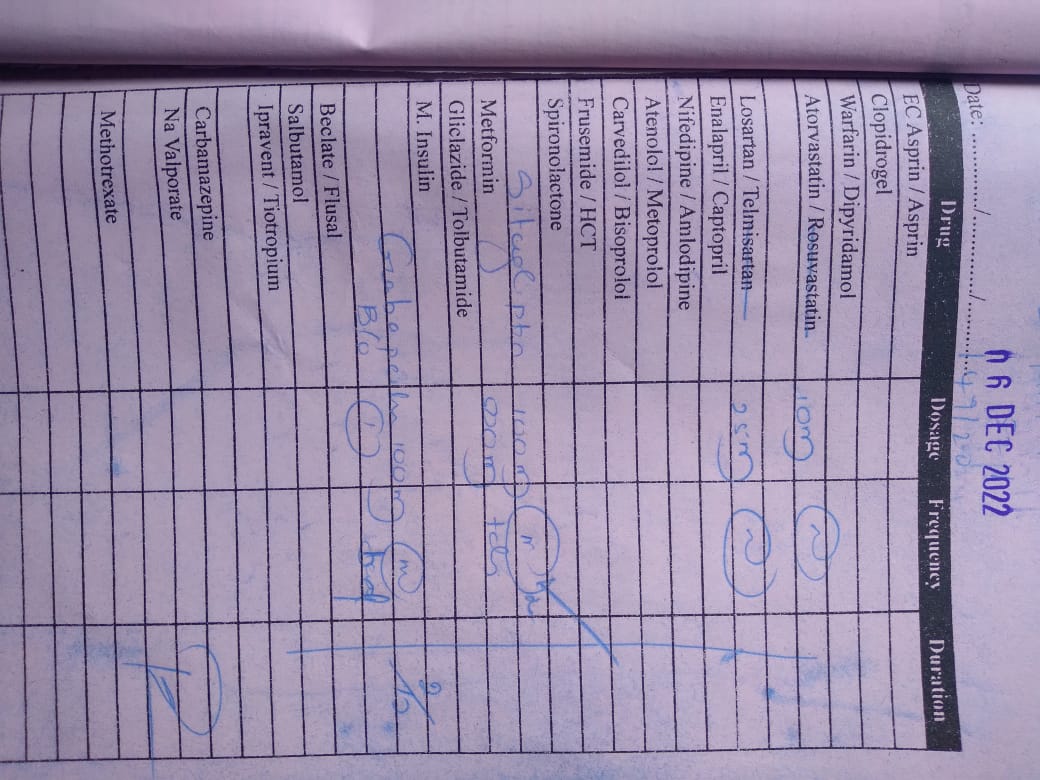 06 DEC 2022
Date: ............/............./............
Drug Dosage Frequency Duration
EC Asprin / Asprin
Clopidrogel
Warfarin / Dipyridamol
Atorvastatin / Rosuvastatin 10mg
Losartan / Telmisartan 25mg
Enalapril / Captopril
Nifedipine / Amlodipine
Atenolol / Metoprolol
Carvedilol / Bisoprolol
Frusemide / HCT
Spironolactone
Sitagliptin 100mg m
Metformin 500mg tds
Gliclazide / Tolbutamide
M. Insulin 2/12
Gabapentin 100mg
B/Co 1
Beclate / Flusal
Salbutamol
Ipravent / Tiotropium
Carbamazepine
Na Valporate
Methotrexate